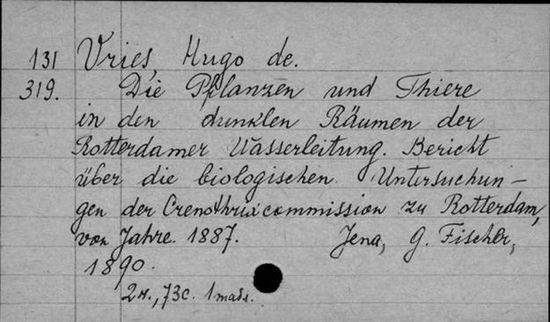 131 Vries, Hugo de.
319. Die Pflanzen und Thiere
in den dunklen Räumen der
Rotterdamer Wasserleitung. Bericht
über die biologischen Untersuchun-
gen der Crenothrixcommission zu Rotterdam,
von Jahre 1887. Jena, G. Fischer,
1890.
2н., 73с. 1 табл.